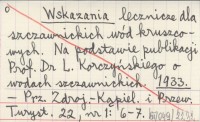 Wskazania lecznicze dla
szczawnickich wód kruszco-
wych. Na podstawie publikacji
Prof. Dr L. Korczyńskiego o
wodach szczawnickich. 1933.
– Prz. Zdroj.-Kąpiel. i Przew.
Turyst. 22, nr 1: 6-7.